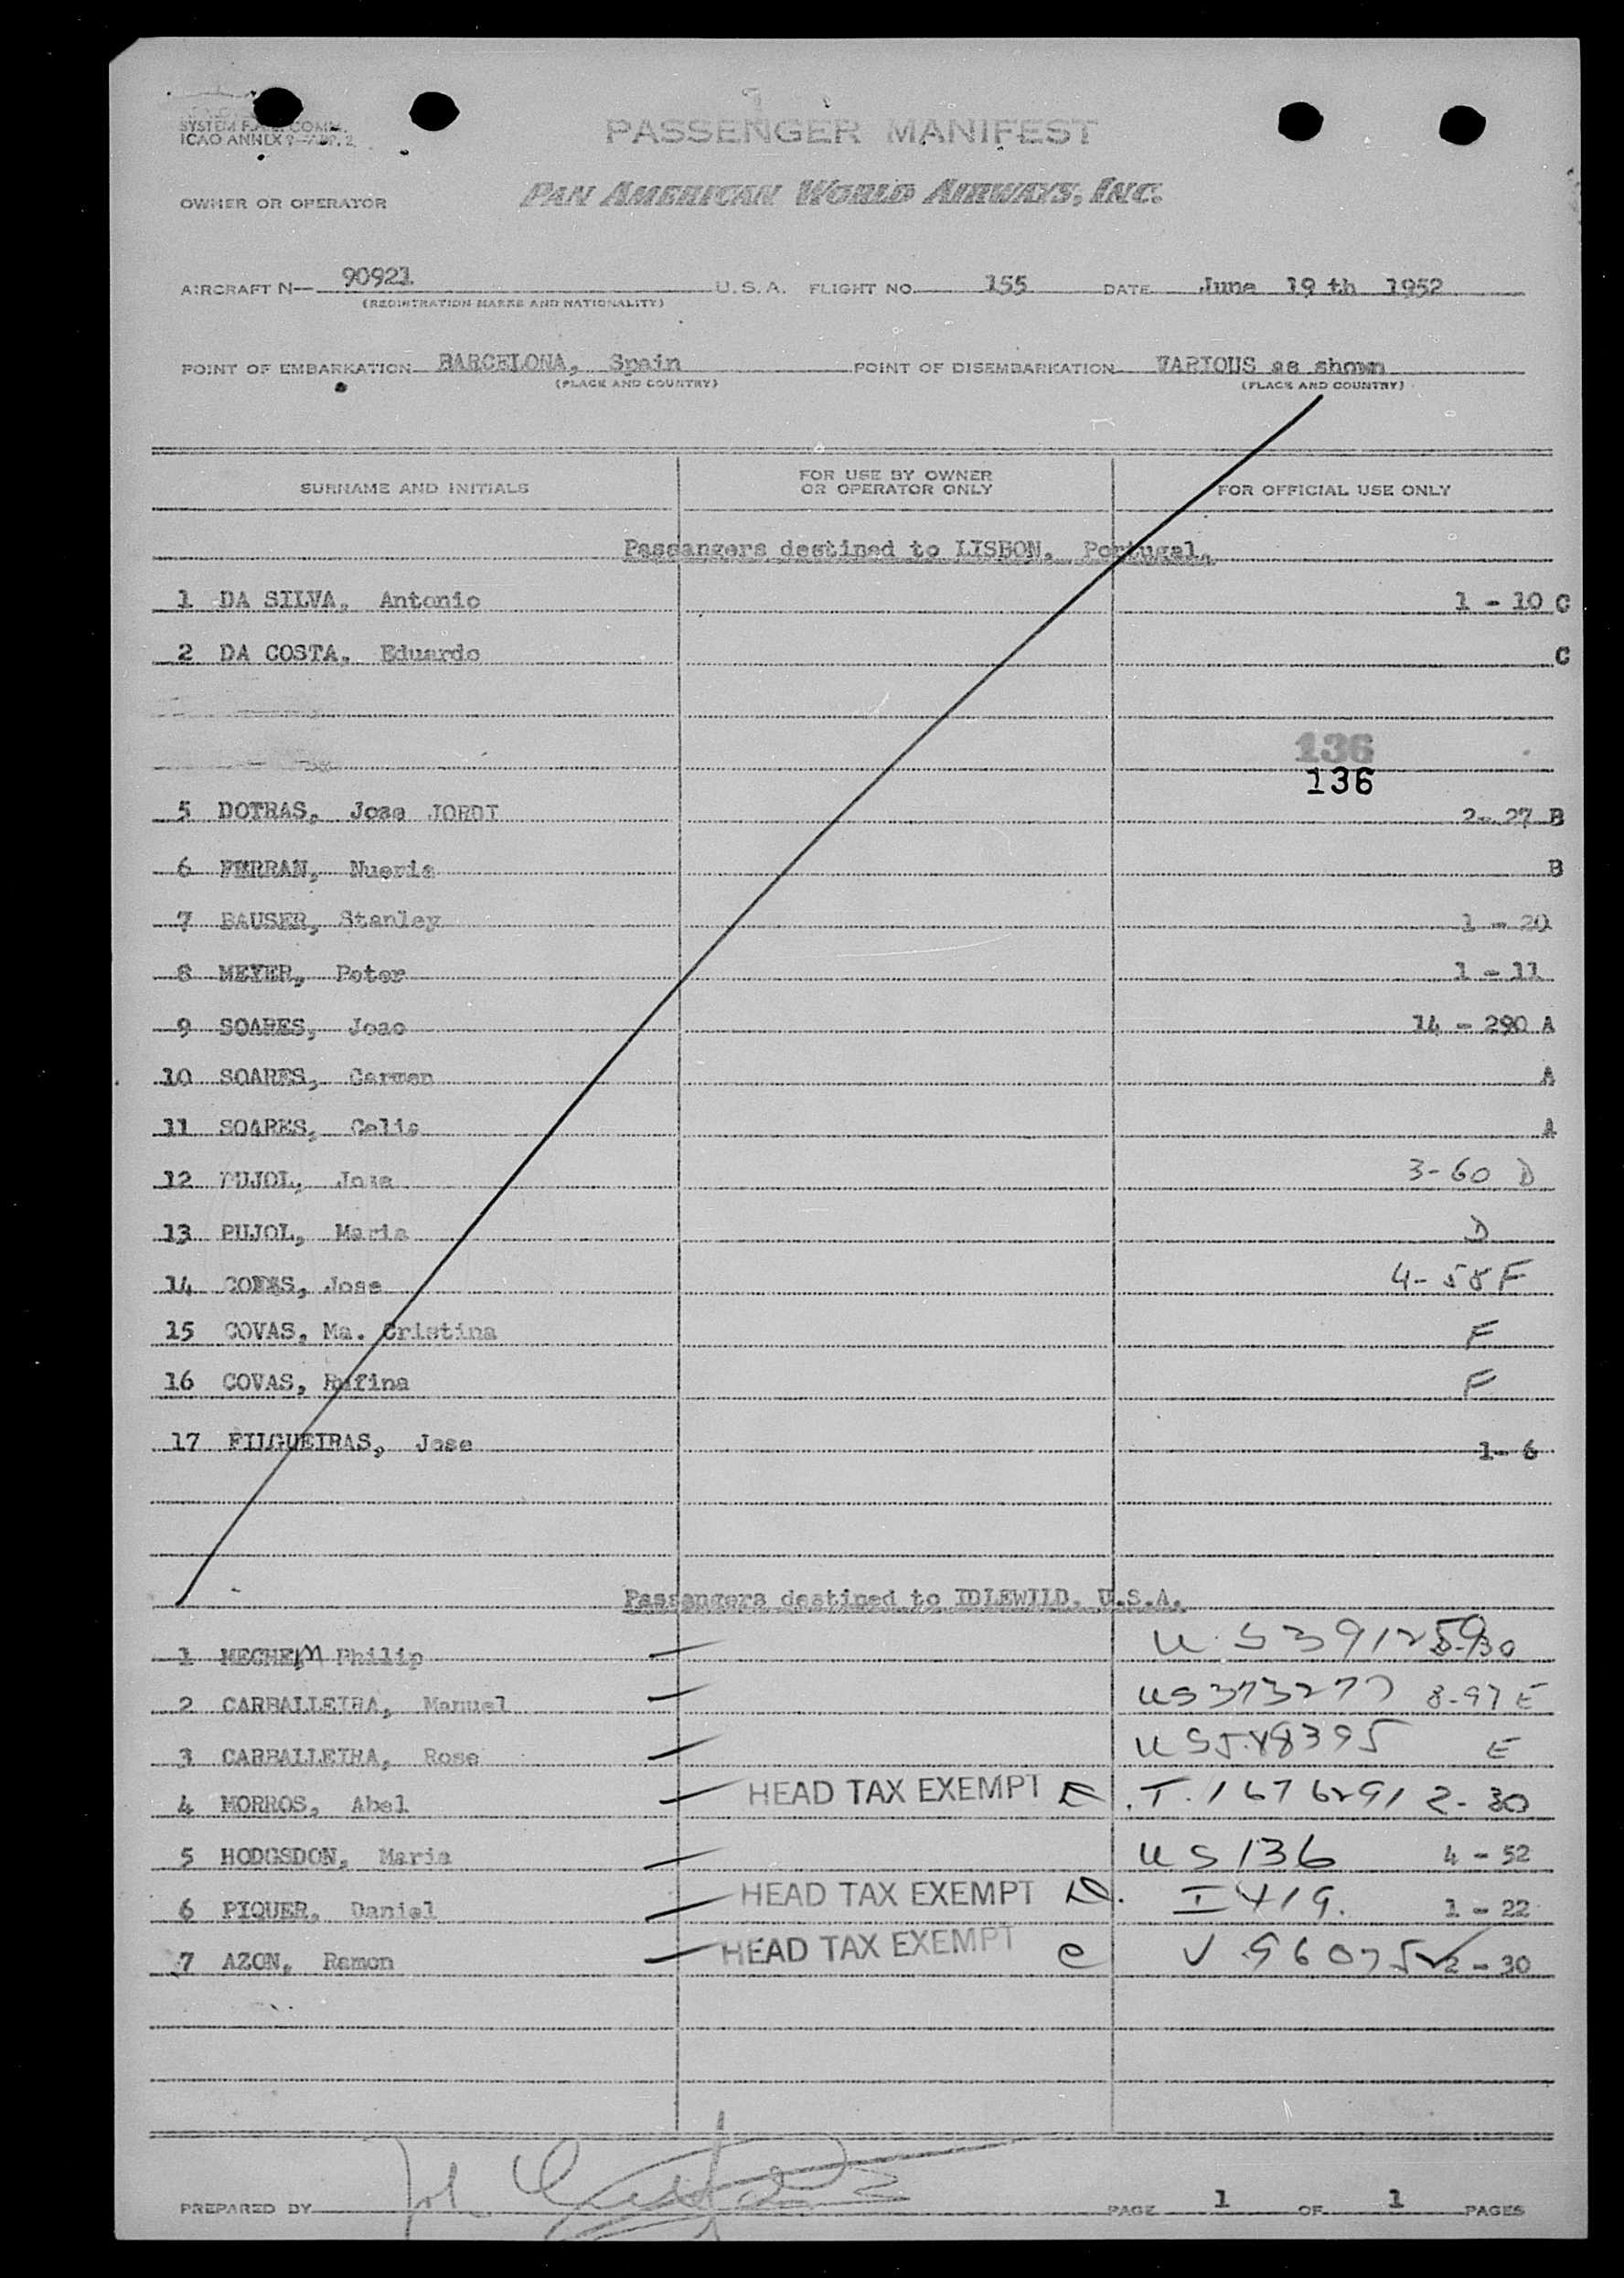 SYSTEM F.A.L. COMM.
ICAO ANNEX 9-APP. 2
PASSENGER MANIFEST
OWNER OR OPERATOR PAN AMERICAN WORLD AIRWAYS, INC.
AIRCRAFT N— 90921 U.S.A. FLIGHT NO. 155 DATE June 19 th 1952
(REGISTRATION MARKS AND NATIONALITY)
POINT OF EMBARKATION BARCELONA, Spain POINT OF DISEMBARKATION VARIOUS as shown
(PLACE AND COUNTRY) (PLACE AND COUNTRY)
SURNAME AND INITIALS FOR USE BY OWNER OR OPERATOR ONLY FOR OFFICIAL USE ONLY
Passangers destined to LISBON, Portugal.
1 DA SILVA, Antonio 1 - 10 C
2 DA COSTA, Eduardo C
136
136
5 DOTRAS, Jose JORDI 2- 27 B
6 FERRAN, Nueria B
7 BAUSER, Stanley 1 - 20
8 MEYER, Peter 1 - 11
9 SOARES, Joao 14 - 290 A
10 SOARES, Carmen A
11 SOARES, Celia A
12 PUJOL, Jose 3-60 D
13 PUJOL, Maria D
14 Jose 4-58 F
15 COVAS, Ma. Cristina F
16 COVAS, Rufina F
17 FILGUEIRAS, Jose 1- 6
Passangers destined to IDLEWILD, U.S.A.
1 MECHEM Philip U S 391259 30
2 CARBALLEIRA, Manuel US 373277 8-97 E
3 CARBALLEIRA, Rose US E
4 MORROS, Abel HEAD TAX EXEMPT T. 1676291 2-30
5 HODGSDON, Maria US 136 4 - 52
6 PIQUER, Daniel HEAD TAX EXEMPT I 419. 1 - 22
7 AZON, Ramon HEAD TAX EXEMPT e V 96075 2 - 30
PREPARED BY PAGE 1 OF 1 PAGES